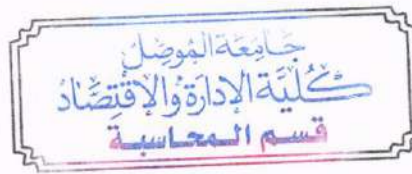 جَامِعَة المُوصِل
كُليَّة الإدَارَة وَالإِقْتِصَادُ
قسم المحاسبة